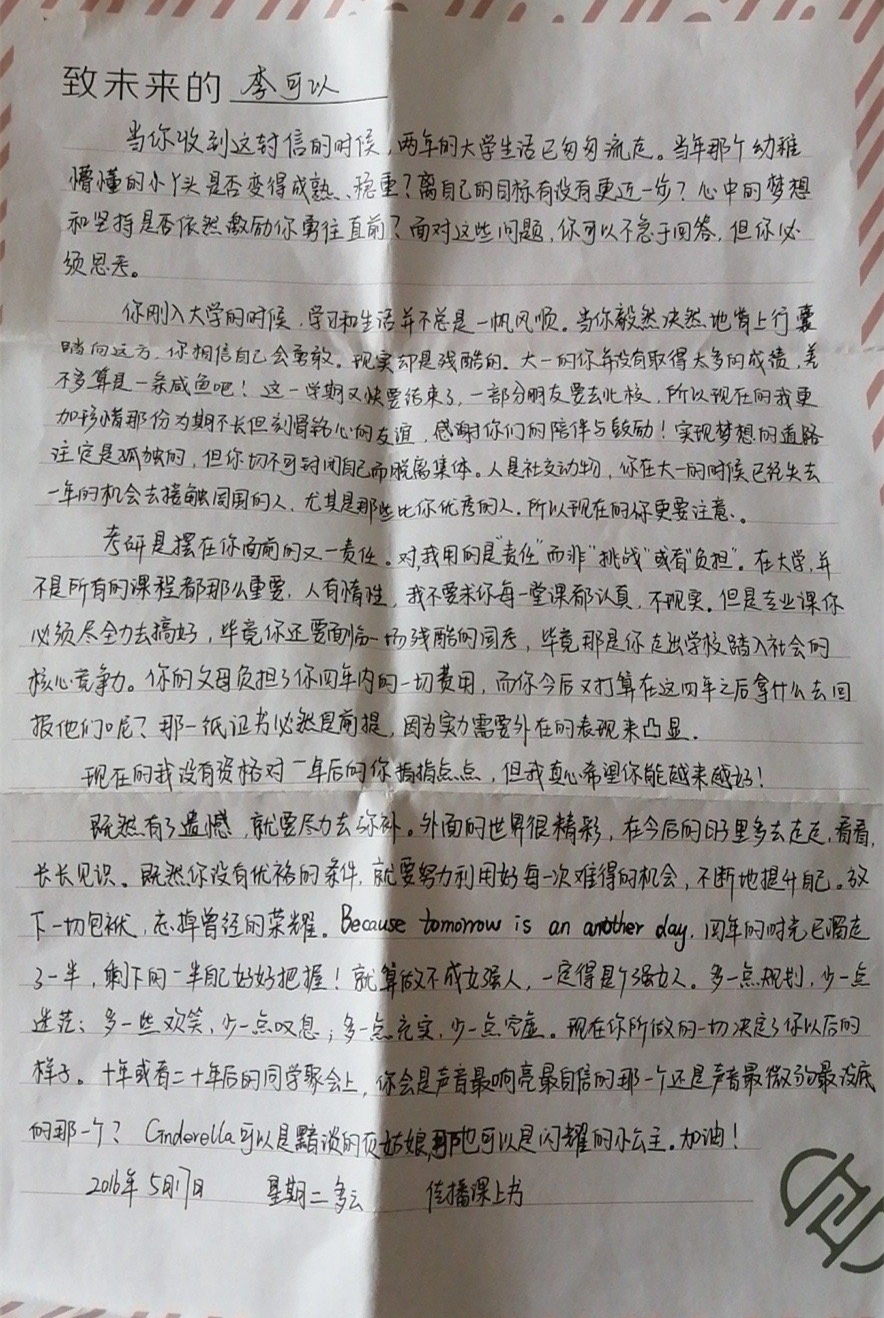 致未来的 李可以
当你收到这封信的时候，两年的大学生活已匆匆流走。当年那个幼稚
懵懂的小丫头是否变得成熟、稳重？离自己的目标有没有更近一步？心中的梦想
和坚持是否依然激励你勇往直前？面对这些问题，你可以不急于回答，但你必
须思考。
你刚入大学的时候，学习和生活并不总是一帆风顺。当你毅然决然地背上行囊
踏向远方，你相信自己会勇敢。现实却是残酷的。大一的你并没有取得太多的成绩，差
不多算是一条咸鱼吧！这一学期又快要结束了，一部分朋友要去北校，所以现在的我更
加珍惜那份为期不长但刻骨铭心的友谊，感谢你们的陪伴与鼓励！实现梦想的道路
注定是孤独的，但你切不可封闭自己而脱离集体。人是社交动物，你在大一的时候已经失去
一年的机会去接触周围的人，尤其是那些比你优秀的人。所以现在的你更要注意。
考研是摆在你面前的又一责任。对，我用的是“责任”而非“挑战”或者“负担”。在大学，并
不是所有的课程都那么重要，人有惰性，我不要求你每一堂课都认真，不现实。但是专业课你
必须尽全力去搞好，毕竟你还要面临一场残酷的国考，毕竟那是你走出学校踏入社会的
核心竞争力。你的父母负担了你四年内的一切费用，而你今后又打算在这四年之后拿什么去回
报他们呢？那一纸证书必然是前提，因为实力需要外在的表现来凸显.
现在的我没有资格对二年后的你指指点点，但我真心希望你能越来越好！
既然有了遗憾，就要尽力去弥补。外面的世界很精彩，在今后的日子里多去走走，看看，
长长见识。既然你没有优裕的条件，就要努力利用好每一次难得的机会，不断地提升自己。放
下一切包袱，忘掉曾经的荣耀。Because tomorrow is an another day. 四年的时光已溜走
了一半，剩下的一半自己好好把握！就算做不成女强人，一定得是个强女人。多一点规划，少一点
迷茫；多一些欢笑，少一点叹息；多一点充实，少一点空虚。现在你所做的一切决定了你以后的
样子。十年或者二十年后的同学聚会上，你会是声音最响亮最自信的那一个还是声音最微弱最没底
的那一个？Cinderella可以是黯淡的灰姑娘，也可以是闪耀的小公主。加油！
2016年5月17日 星期二 多云 传播课上书